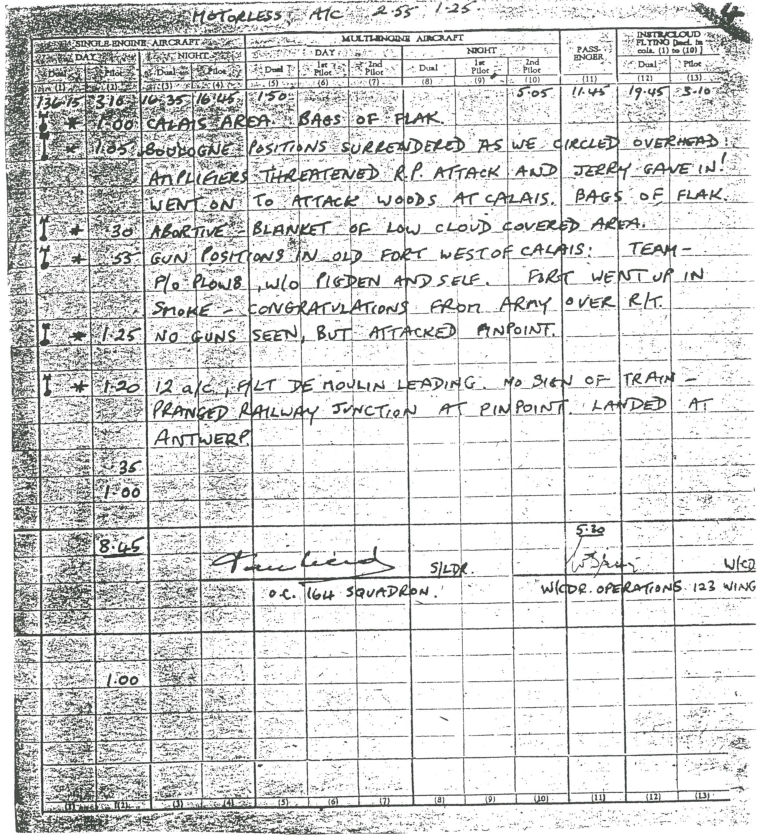 MOTORLESS, A/C 2.55 1.25
4
SINGLE-ENGINE AIRCRAFT MULTI-ENGINE AIRCRAFT PASS-ENGER INSTR/CLOUD FLYING [Incl. in cols. (1) to (10)]
DAY NIGHT DAY NIGHT
Dual Pilot Dual Pilot Dual 1st Pilot 2nd Pilot Dual 1st Pilot 2nd Pilot Dual Pilot
(1) (2) (3) (4) (5) (6) (7) (8) (9) (10) (11) (12) (13)
136.15 16.35 16.45 1.50 5.05 11.45 19.45 3.10
I * 1.00 CALAIS AREA. BAGS OF FLAK.
I * 1.05 BOULOGNE POSITIONS SURRENDERED AS WE CIRCLED OVERHEAD!
AMPLIFIERS THREATENED R.P. ATTACK AND JERRY GAVE IN!
WENT ON TO ATTACK WOODS AT CALAIS. BAGS OF FLAK.
I * .30 ABORTIVE - BLANKET OF LOW CLOUD COVERED AREA.
I * .55 GUN POSITIONS IN OLD FORT WEST OF CALAIS: TEAM-
P/O PLOWS, W/O PIGDEN AND SELF. FORT WENT UP IN
SMOKE - CONGRATULATIONS FROM ARMY OVER R/T.
I * 1.25 NO GUNS SEEN, BUT ATTACKED PINPOINT.
I * 1.20 12 a/c, F/LT DE MOULIN LEADING. NO SIGN OF TRAIN -
PRANGED RAILWAY JUNCTION AT PINPOINT. LANDED AT
ANTWERP
.35
1.00
8.45 5.30
S/LDR. W/CD
O.C. 164 SQUADRON. W/CDR. OPERATIONS 123 WING
1.00
(1) (2) (3) (4) (5) (6) (7) (8) (9) (10) (11) (12) (13)